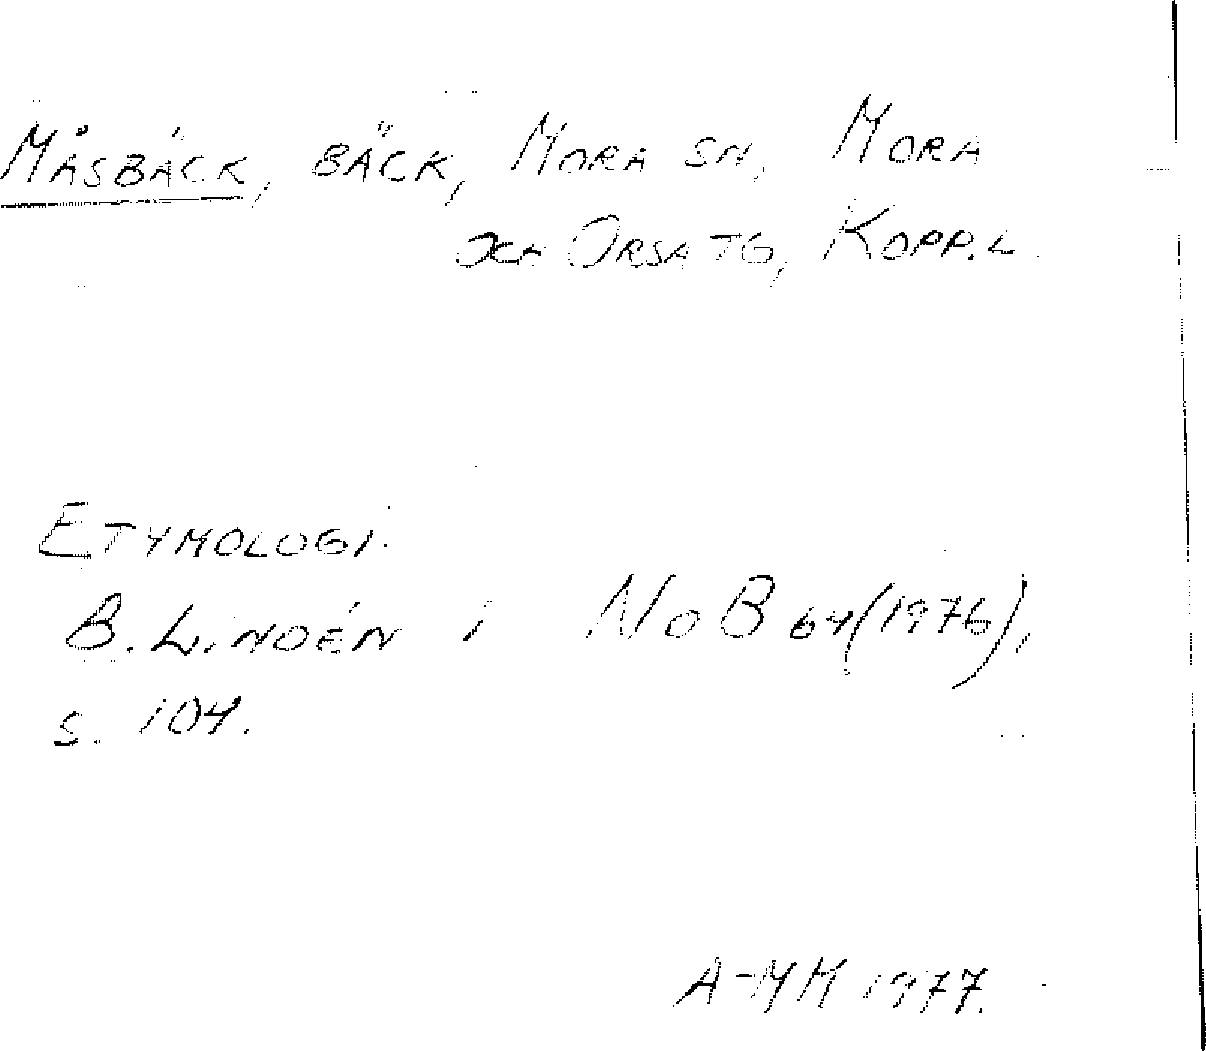 MÅSBÄCK, BÄCK, MORA SN, MORA
OCH ORSA TG, KOPP.L.
ETYMOLOGI.
B. LINDÉN i NoB 64 (1976),
S. 104.
A-MH 1977.